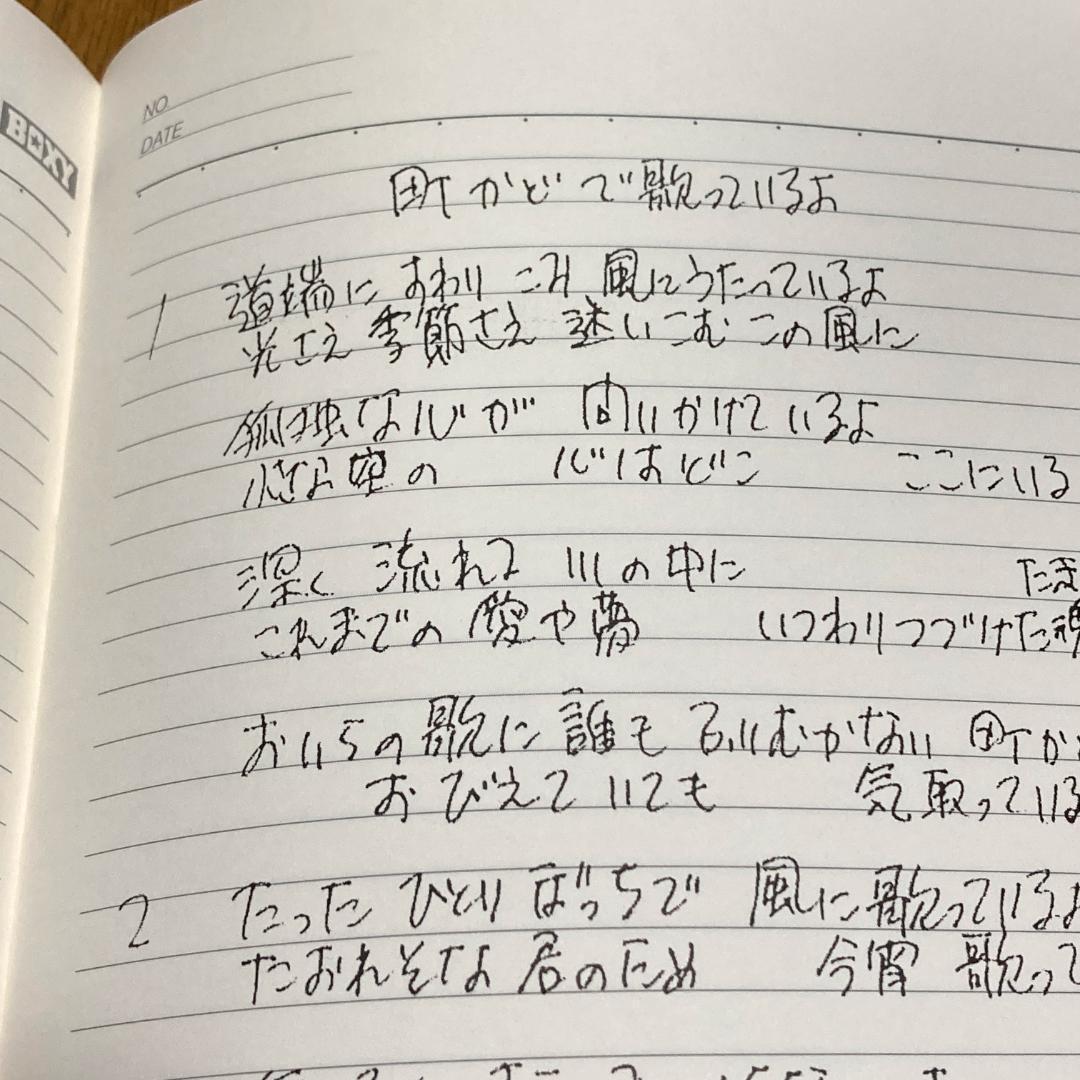 BOXY
NO
DATE
町かどで歌っているよ
1 道端に すわりこみ 風にうたっているよ
光さえ 季節さえ 迷いこむ この風に
孤独な心が 問いかけているよ
小さな空の 心はどこ ここにいる
深く 流れて 川の中に たま
これまでの 愛や夢 いつわりつづけた魂
おいらの歌に 誰も ふりむかない 町か
おびえていても 気取っている
2 たった ひとりぼっちで 風に歌っているよ
たおれそな 君のため 今宵 歌って